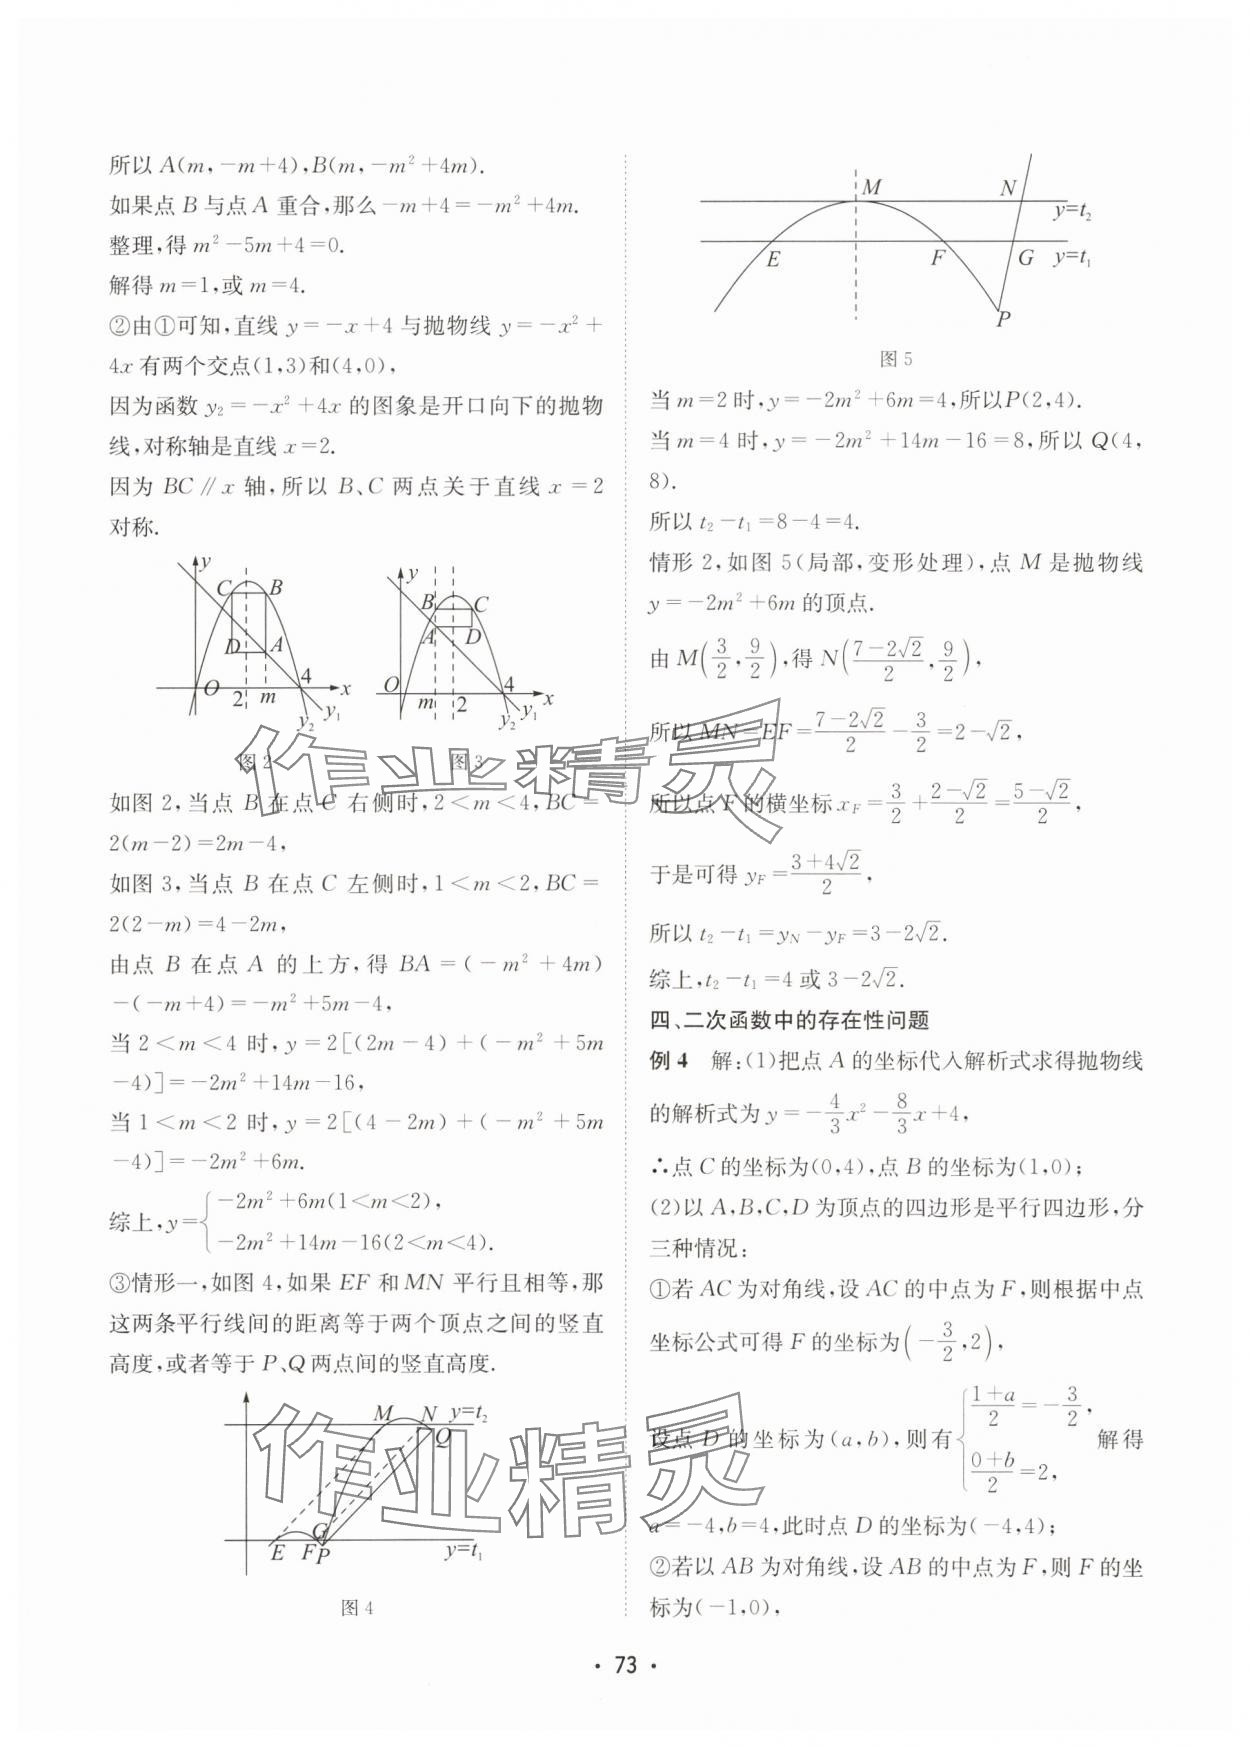 所以 A(m,-m+4),B(m,-m²+4m).
如果点 B 与点 A 重合,那么-m+4=-m²+4m.
整理,得 m²-5m+4=0.
解得 m=1,或 m=4.
②由①可知,直线 y=-x+4 与抛物线 y=-x²+
4x 有两个交点(1,3)和(4,0),
因为函数 y₂=-x²+4x 的图象是开口向下的抛物
线,对称轴是直线 x=2.
因为 BC∥x 轴,所以 B、C 两点关于直线 x=2
对称.
y C B D A O 2 m 4 x y₂ y₁
图 2
y B C A D O m 2 4 x y₂ y₁
图 3
如图 2,当点 B 在点 C 右侧时,2<m<4,BC=
2(m-2)=2m-4,
如图 3,当点 B 在点 C 左侧时,1<m<2,BC=
2(2-m)=4-2m,
由点 B 在点 A 的上方,得 BA=(-m²+4m)
-(-m+4)=-m²+5m-4,
当 2<m<4 时,y=2[(2m-4)+(-m²+5m
-4)]=-2m²+14m-16,
当 1<m<2 时,y=2[(4-2m)+(-m²+5m
-4)]=-2m²+6m.
综上,y={-2m²+6m(1<m<2),
-2m²+14m-16(2<m<4).
③情形一,如图 4,如果 EF 和 MN 平行且相等,那
这两条平行线间的距离等于两个顶点之间的竖直
高度,或者等于 P、Q 两点间的竖直高度.
M N y=t₂ Q G E F P y=t₁
图 4
M N y=t₂ E F G y=t₁ P
图 5
当 m=2 时,y=-2m²+6m=4,所以P(2,4).
当 m=4 时,y=-2m²+14m-16=8,所以 Q(4,
8).
所以 t₂-t₁=8-4=4.
情形 2,如图 5(局部,变形处理),点 M 是抛物线
y=-2m²+6m 的顶点.
由 M(3/2,9/2),得 N((7-2√2)/2,9/2),
所以 MN=EF=(7-2√2)/2-3/2=2-√2,
所以点 F 的横坐标 x_F=3/2+(2-√2)/2=(5-√2)/2,
于是可得 y_F=(3+4√2)/2,
所以 t₂-t₁=y_N-y_F=3-2√2.
综上,t₂-t₁=4 或 3-2√2.
四、二次函数中的存在性问题
例 4 解:(1)把点 A 的坐标代入解析式求得抛物线
的解析式为 y=-4/3x²-8/3x+4,
∴点 C 的坐标为(0,4),点 B 的坐标为(1,0);
(2)以 A,B,C,D 为顶点的四边形是平行四边形,分
三种情况:
①若 AC 为对角线,设 AC 的中点为 F,则根据中点
坐标公式可得 F 的坐标为(-3/2,2),
设点 D 的坐标为(a,b),则有{(1+a)/2=-3/2, (0+b)/2=2, 解得
a=-4,b=4,此时点 D 的坐标为(-4,4);
②若以 AB 为对角线,设 AB 的中点为 F,则 F 的坐
标为(-1,0),
· 73 ·
作业精灵
作业精灵